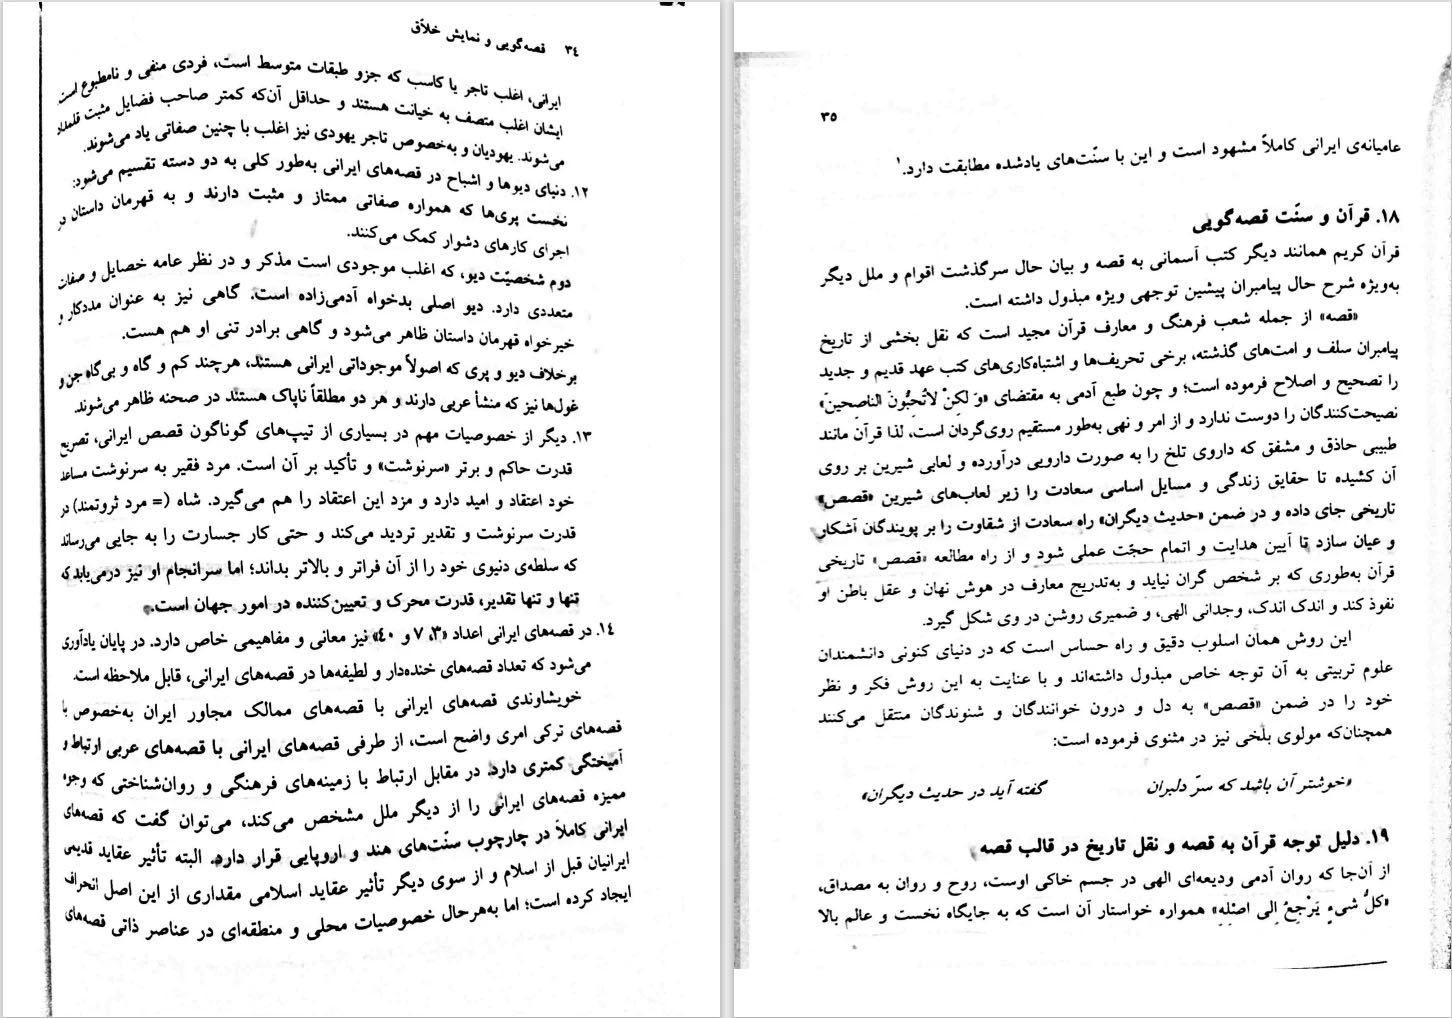 ۳٤ قصه‌گویی و نمایش خلاّق
ایرانی، اغلب تاجر یا کاسب که جزو طبقات متوسط است، فردی منفی و نامطبوع است.
ایشان اغلب متصف به خیانت هستند و حداقل آن‌که کمتر صاحب فضایل مثبت قلمداد
می‌شوند. یهودیان و به‌خصوص تاجر یهودی نیز اغلب با چنین صفاتی یاد می‌شوند.
۱۲. دنیای دیوها و اشباح در قصه‌های ایرانی به‌طور کلی به دو دسته تقسیم می‌شود:
نخست پری‌ها که همواره صفاتی ممتاز و مثبت دارند و به قهرمان داستان در
اجرای کارهای دشوار کمک می‌کنند.
دوم شخصیّت دیو، که اغلب موجودی است مذکر و در نظر عامه خصایل و صفات
متعددی دارد. دیو اصلی بدخواه آدمی‌زاده است. گاهی نیز به عنوان مددکار و
خیرخواه قهرمان داستان ظاهر می‌شود و گاهی برادر تنی او هم هست.
برخلاف دیو و پری که اصولاً موجوداتی ایرانی هستند، هرچند کم و گاه و بی‌گاه جن و
غول‌ها نیز که منشأ عربی دارند و هر دو مطلقاً ناپاک هستند در صحنه ظاهر می‌شوند.
۱۳. دیگر از خصوصیات مهم در بسیاری از تیپ‌های گوناگون قصص ایرانی، تصریح
قدرت حاکم و برتر «سرنوشت» و تأکید بر آن است. مرد فقیر به سرنوشت مساعد
خود اعتقاد و امید دارد و مزد این اعتقاد را هم می‌گیرد. شاه (= مرد ثروتمند) در
قدرت سرنوشت و تقدیر تردید می‌کند و حتی کار جسارت را به جایی می‌رساند
که سلطه‌ی دنیوی خود را از آن فراتر و بالاتر بداند؛ اما سرانجام او نیز درمی‌یابد که
تنها و تنها تقدیر، قدرت محرک و تعیین‌کننده در امور جهان است.
۱٤. در قصه‌های ایرانی اعداد «۳، ۷ و ٤۰» نیز معانی و مفاهیمی خاص دارد. در پایان یادآوری
می‌شود که تعداد قصه‌های خنده‌دار و لطیفه‌ها در قصه‌های ایرانی، قابل ملاحظه است.
خویشاوندی قصه‌های ایرانی با قصه‌های ممالک مجاور ایران به‌خصوص با
قصه‌های ترکی امری واضح است، از طرفی قصه‌های ایرانی با قصه‌های عربی ارتباط و
آمیختگی کمتری دارد. در مقابل ارتباط با زمینه‌های فرهنگی و روان‌شناختی که وجوه
ممیزه قصه‌های ایرانی را از دیگر ملل مشخص می‌کند، می‌توان گفت که قصه‌های
ایرانی کاملاً در چارچوب سنّت‌های هند و اروپایی قرار دارد. البته تأثیر عقاید قدیمی
ایرانیان قبل از اسلام و از سوی دیگر تأثیر عقاید اسلامی مقداری از این اصل انحراف
ایجاد کرده است؛ اما به‌هرحال خصوصیات محلی و منطقه‌ای در عناصر ذاتی قصه‌های
۳٥
عامیانه‌ی ایرانی کاملاً مشهود است و این با سنّت‌های یادشده مطابقت دارد.۱
۱۸. قرآن و سنّت قصه‌گویی
قرآن کریم همانند دیگر کتب آسمانی به قصه و بیان حال سرگذشت اقوام و ملل دیگر
به‌ویژه شرح حال پیامبران پیشین توجهی ویژه مبذول داشته است.
«قصه» از جمله شعب فرهنگ و معارف قرآن مجید است که نقل بخشی از تاریخ
پیامبران سلف و امت‌های گذشته، برخی تحریف‌ها و اشتباه‌کاری‌های کتب عهد قدیم و جدید
را تصحیح و اصلاح فرموده است؛ و چون طبع آدمی به مقتضای «وَ لکِنْ لاتُحِبُّونَ الناصحینَ»
نصیحت‌کنندگان را دوست ندارد و از امر و نهی به‌طور مستقیم روی‌گردان است، لذا قرآن مانند
طبیبی حاذق و مشفق که داروی تلخ را به صورت دارویی درآورده و لعابی شیرین بر روی
آن کشیده تا حقایق زندگی و مسایل اساسی سعادت را زیر لعاب‌های شیرین «قصص»
تاریخی جای داده و در ضمن «حدیث دیگران» راه سعادت از شقاوت را بر پویندگان آشکار
و عیان سازد تا آیین هدایت و اتمام حجّت عملی شود و از راه مطالعه «قصص» تاریخی
قرآن به‌طوری که بر شخص گران نیاید و به‌تدریج معارف در هوش نهان و عقل باطن او
نفوذ کند و اندک اندک، وجدانی الهی، و ضمیری روشن در وی شکل گیرد.
این روش همان اسلوب دقیق و راه حساس است که در دنیای کنونی دانشمندان
علوم تربیتی به آن توجه خاص مبذول داشته‌اند و با عنایت به این روش فکر و نظر
خود را در ضمن «قصص» به دل و درون خوانندگان و شنوندگان منتقل می‌کنند
همچنان‌که مولوی بلخی نیز در مثنوی فرموده است:
«خوشتر آن باشد که سرّ دلبران گفته آید در حدیث دیگران»
۱۹. دلیل توجه قرآن به قصه و نقل تاریخ در قالب قصه
از آن‌جا که روان آدمی ودیعه‌ای الهی در جسم خاکی اوست، روح و روان به مصداق،
«کلُّ شیءٍ یَرْجعُ اِلی اصْلِهِ» همواره خواستار آن است که به جایگاه نخست و عالم بالا